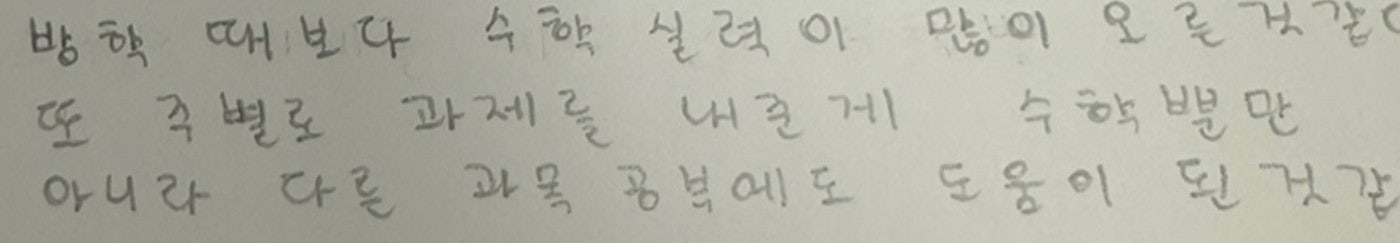 방학 때보다 수학 실력이 많이 오른것같
또 주별로 과제를 내준게 수학뿐만
아니라 다른 과목 공부에도 도움이 된것같